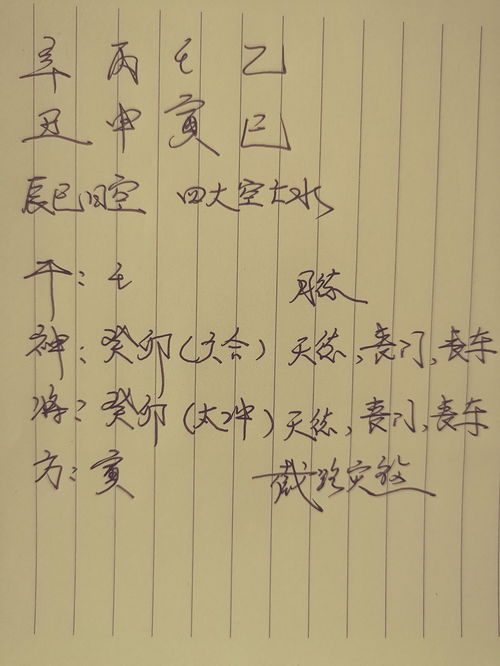 辛 丙 壬 乙
丑 申 寅 巳
辰巳日空 四大空亡水
干：壬 月德
神：癸卯（六合） 天德，丧门，丧车
将：癸卯（太冲）天德，丧门，丧车
方：寅 截路灾煞